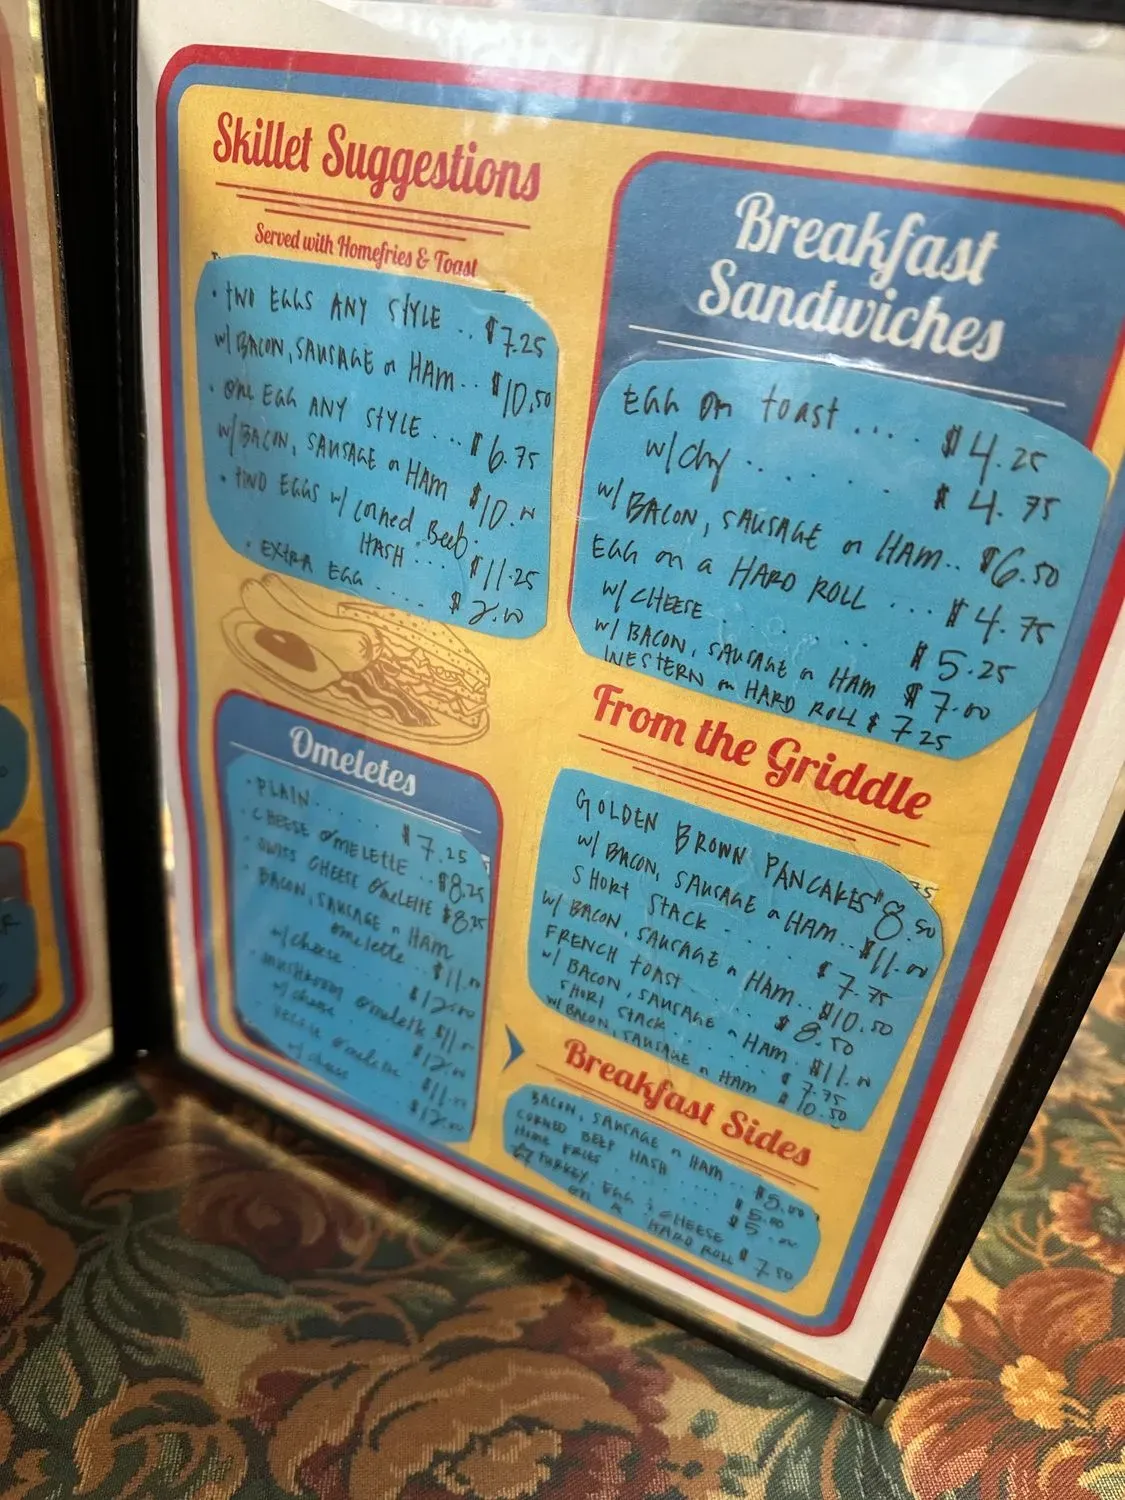 Skillet Suggestions
Served with Homefries & Toast
• TWO EGGS ANY STYLE .. $7.25
w/ BACON, SAUSAGE or HAM.. $10.50
• ONE EGG ANY STYLE ... $6.75
w/ BACON, SAUSAGE or HAM $10.00
• TWO EGGS w/ Corned Beef
HASH ... $11.25
• EXTRA EGG ..... $2.00
Omeletes
• PLAIN .... $7.25
• CHEESE OMELETTE .. $8.25
SWISS CHEESE OMELETTE $8.25
• BACON, SAUSAGE or HAM
omelette .. $11.00
w/ cheese .... $12.00
• MUSHROOM Omelette $11.00
w/ cheese .... $12.00
VEGGIE Omelette .. $11.00
w/ cheese $12.00
Breakfast
Sandwiches
EGG on toast .... $4.25
w/ chz ...... $4.75
w/ BACON, SAUSAGE or HAM.. $6.50
EGG on a HARD ROLL ... $4.75
w/ CHEESE ....... $5.25
w/ BACON, SAUSAGE or HAM $7.00
WESTERN on HARD ROLL $7.25
From the Griddle
GOLDEN BROWN PANCAKES $8.50
w/ BACON, SAUSAGE or HAM.. $11.00
SHORT STACK ..... $7.75
w/ BACON, SAUSAGE or HAM.. $10.50
FRENCH TOAST ..... $8.50
w/ BACON, SAUSAGE or HAM $11.00
SHORT STACK ..... $7.75
w/ BACON, SAUSAGE or HAM $10.50
Breakfast Sides
BACON, SAUSAGE or HAM .. $5.00
CORNED BEEF HASH .... $5.00
HOME FRIES ....... $5.00
TURKEY, EGG & CHEESE
ON A HARD ROLL $7.50